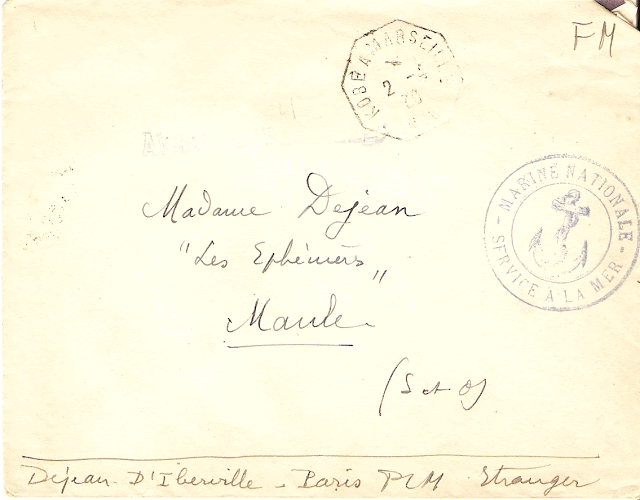 FM
KOBE A MARSEILLE
2
MARINE NATIONALE
- SERVICE À LA MER -
Madame Dejean
"Les Ephémères"
Maule
(S et O)
Dejean - D'Iberville - Paris PLM Etranger